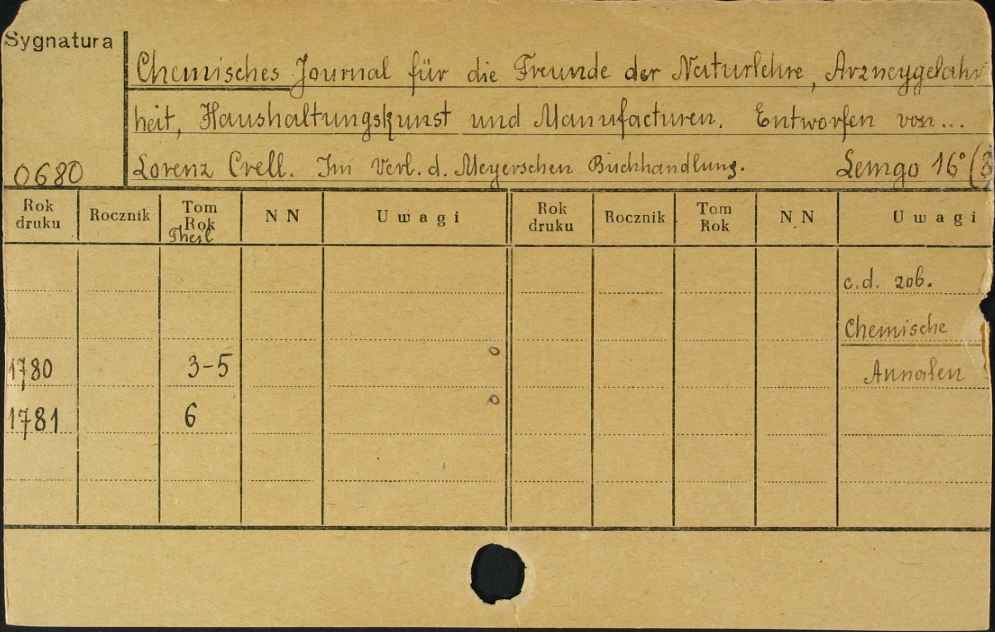 Sygnatura
Chemisches Journal für die Freunde der Naturlehre, Arzneygelahr
heit, Haushaltungskunst und Manufacturen. Entworfen von...
0680 Lorenz Crell. Im Verl. d. Meyerschen Buchhandlung. Lemgo 16° (8
Rok druku Rocznik Tom Rok Theil NN Uwagi Rok druku Rocznik Tom Rok NN Uwagi
c.d. zob.
Chemische
1780 3-5 o Annalen
1781 6 o